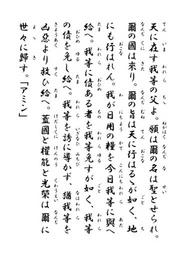 天に在す我等の父よ。願は爾の名は聖とせられ。
爾の國は來り。爾の旨は天に行はるゝが如く、地
にも行はれん。我が日用の糧を今日我等に與へ
給へ。我等に債ある者を我等免すが如く、我等
の債を免し給へ。我等を誘に導かず、猶我等を
凶惡より救ひ給へ。蓋國と權能と光榮は爾に
世々に歸す。「アミン」